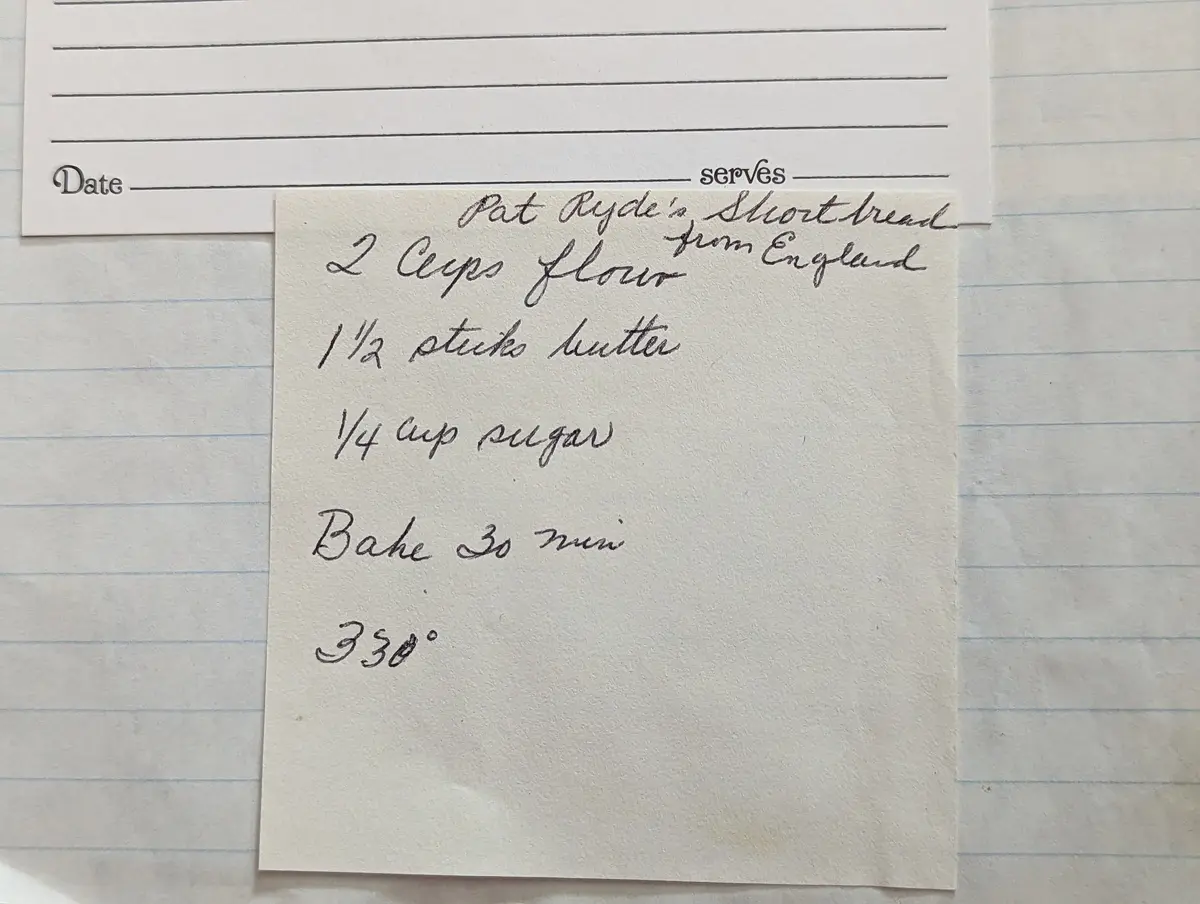 Date serves
Pat Ryde's Shortbread
from England
2 Cups flour
1 1/2 sticks butter
1/4 cup sugar
Bake 30 min
330°